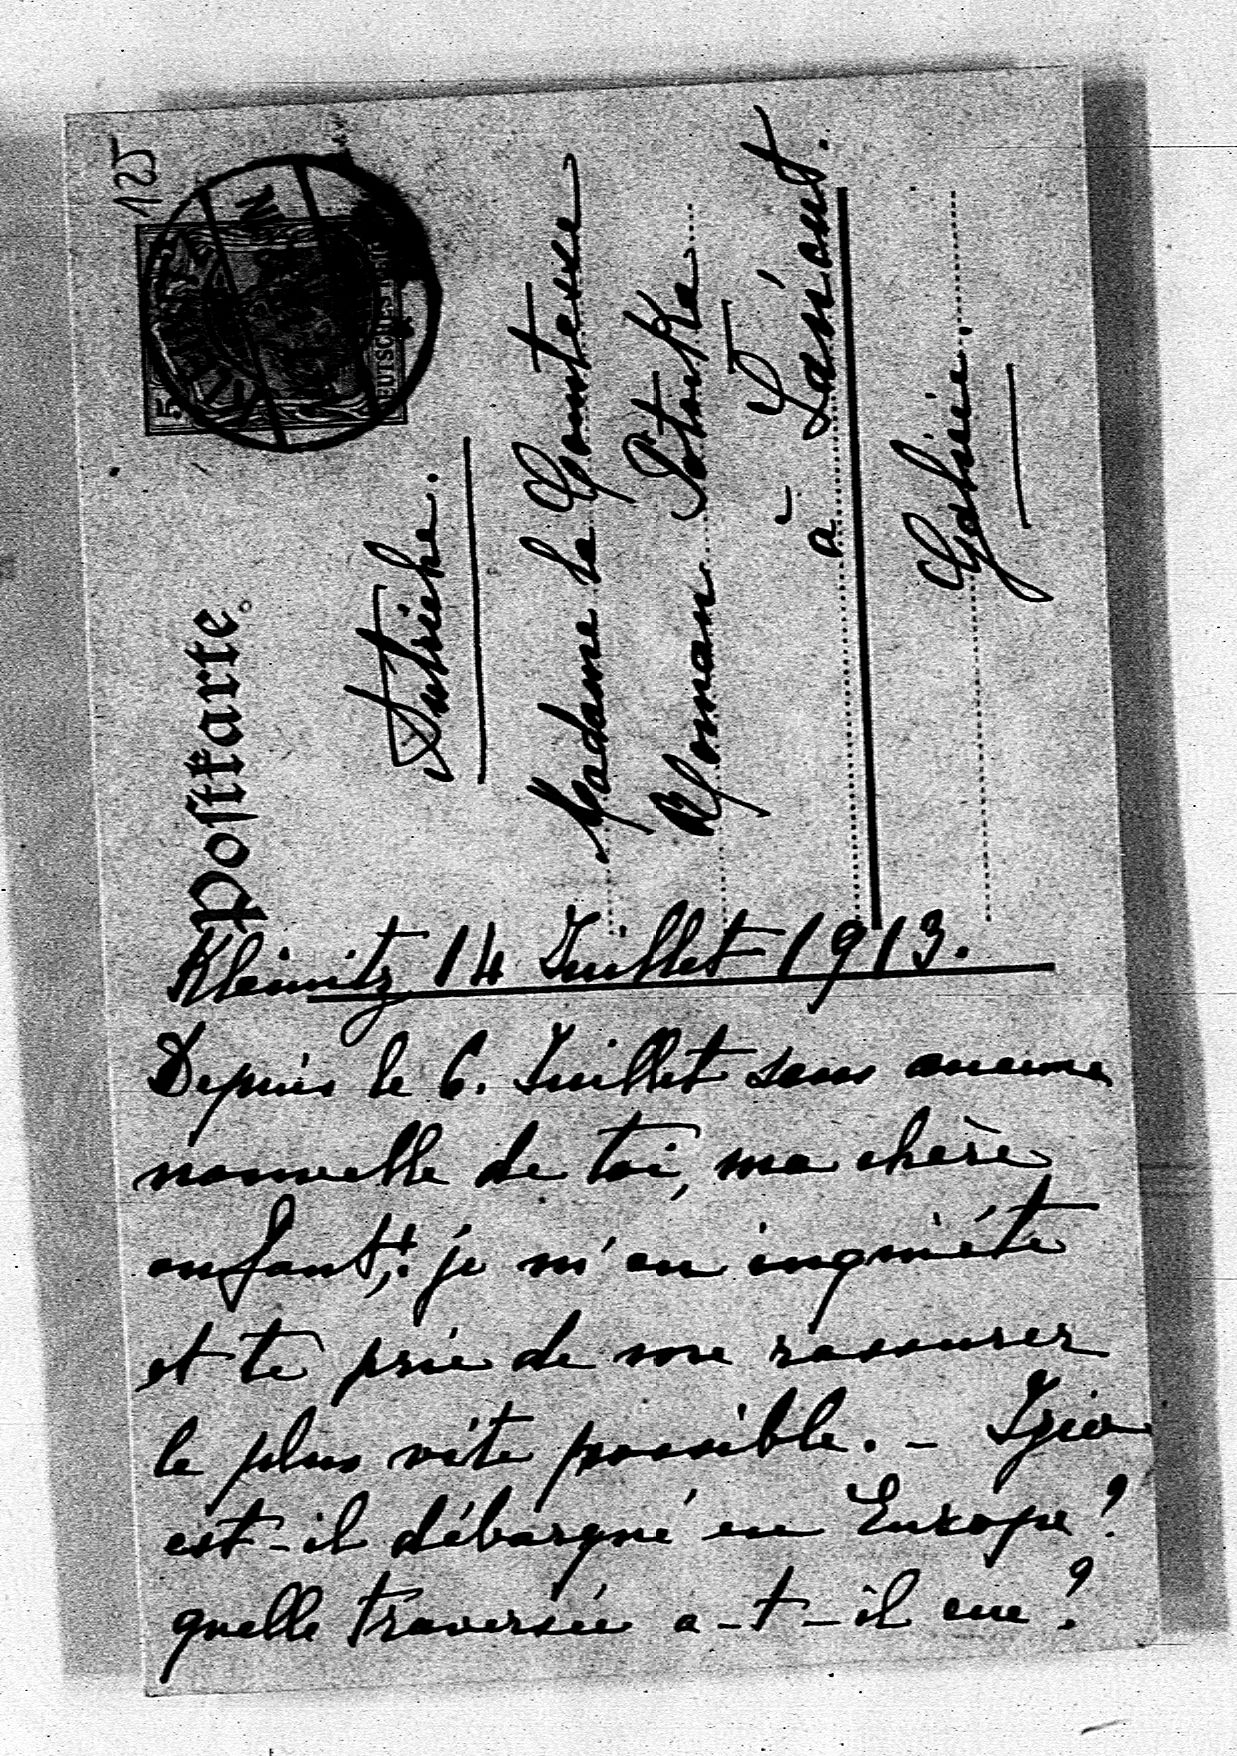 125
5
DEUTSCHES REICH
Postkarte
Autriche.
Madame la Comtesse
Roman Potocka
à Łańcut.
Galicie.
Kleinitz 14 Juillet 1913.
Depuis le 6. Juillet sans aucune
nouvelle de toi, ma chère
enfant; je m'en inquiéte
et te prie de me rassurer
le plus vite possible. –
est-il débarqué en Europe?
quelle traversée a-t-il eue?